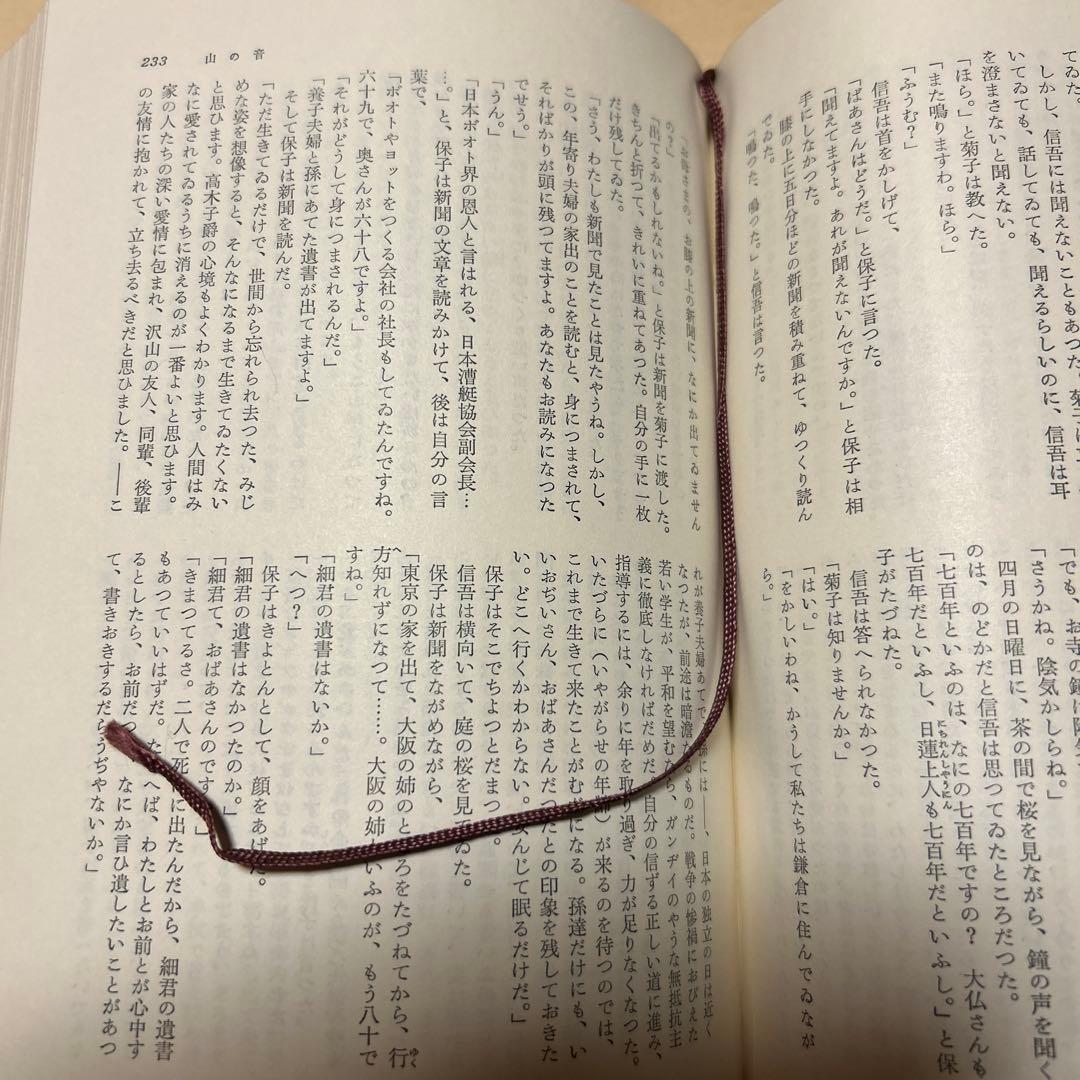 てゐた。
しかし、信吾には聞えないこともあつた。
いてゐても、話してゐても、聞えるらしいのに、信吾は耳
を澄まさないと聞えない。
「ほら。」と菊子は教へた。
「また鳴りますわ。ほら。」
「ふうむ？」
信吾は首をかしげて、
「ばあさんはどうだ。」と保子に言つた。
「聞えてますよ。あれが聞えないんですか。」と保子は相
手にしなかつた。
膝の上に五日分ほどの新聞を積み重ねて、ゆつくり読ん
でゐた。
「鳴つた、鳴つた。」と信吾は言つた。
「でも、お寺の鐘は
「さうかね。陰気かしらね。」
四月の日曜日に、茶の間で桜を見ながら、鐘の声を聞く
のは、のどかだと信吾は思つてゐたところだつた。
「七百年といふのは、なにの七百年ですの？　大仏さんも
七百年だといふし、日蓮上人も七百年だといふし。」と保
にちれんしやうにん
子がたづねた。
信吾は答へられなかつた。
「菊子は知りませんか。」
「はい。」
「をかしいわね、かうして私たちは鎌倉に住んでゐなが
ら。」
233　山の音
お膝の上の新聞に、なにか出てゐません
の？」
「出てるかもしれないね。」と保子は新聞を菊子に渡した。
きちんと折つて、きれいに重ねてあつた。自分の手に一枚
だけ残してゐた。
「さう、わたしも新聞で見たことは見たやうね。しかし、
この、年寄り夫婦の家出のことを読むと、身につまされて、
そればかりが頭に残つてますよ。あなたもお読みになつた
でせう。」
「うん。」
「日本ボオト界の恩人と言はれる、日本漕艇協会副会長…
…。」と、保子は新聞の文章を読みかけて、後は自分の言
葉で、
「ボオトやヨットをつくる会社の社長もしてゐたんですね。
六十九で、奥さんが六十八ですよ。」
「それがどうして身につまされるんだ。」
「養子夫婦と孫にあてた遺書が出てますよ。」
そして保子は新聞を読んだ。
「ただ生きてゐるだけで、世間から忘れられ去つた、みじ
めな姿を想像すると、そんなになるまで生きてゐたくない
と思ひます。高木子爵の心境もよくわかります。人間はみ
なに愛されてゐるうちに消えるのが一番よいと思ひます。
家の人たちの深い愛情に包まれ、沢山の友人、同輩、後輩
の友情に抱かれて、立ち去るべきだと思ひました。――こ
れが養子夫婦あてで、孫には――、日本の独立の日は近く
なつたが、前途は暗澹たるものだ。戦争の惨禍におびえた
若い学生が、平和を望むなら、ガンヂイのやうな無抵抗主
義に徹底しなければだめだ。自分の信ずる正しい道に進み、
指導するには、余りに年を取り過ぎ、力が足りなくなつた。
いたづらに（いやがらせの年齢）が来るのを待つのでは、
これまで生きて来たことがむだになる。孫達だけにも、い
いおぢいさん、おばあさんだつたとの印象を残しておきた
い。どこへ行くかわからない。安んじて眠るだけだ。」
保子はそこでちよつとだまつた。
信吾は横向いて、庭の桜を見てゐた。
保子は新聞をながめながら、
「東京の家を出て、大阪の姉のところをたづねてから、行
ゆく
方知れずになつて……。大阪の姉といふのが、もう八十で
へ
すね。」
「細君の遺書はないか。」
「へつ？」
保子はきよとんとして、顔をあげた。
「細君の遺書はなかつたのか。」
「細君て、おばあさんのですか。」
「きまつてるさ。二人で死にに出たんだから、細君の遺書
もあつていいはずだ。たとへば、わたしとお前とが心中す
るとしたら、お前だつて、なにか言ひ遺したいことがあつ
て、書きおきするだらうぢやないか。」